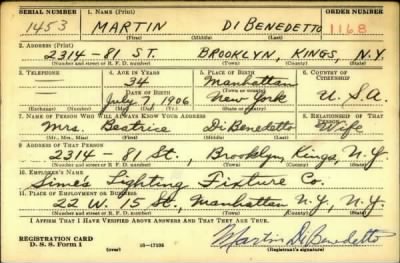 SERIAL NUMBER 1. NAME (Print) ORDER NUMBER
1453 MARTIN DI BENEDETTO 1168
(First) (Middle) (Last)
2. ADDRESS (Print)
2314-81 ST. BROOKLYN, KINGS, N.Y.
(Number and street or R. F. D. number) (Town) (County) (State)
3. TELEPHONE 4. AGE IN YEARS 5. PLACE OF BIRTH 6. COUNTRY OF CITIZENSHIP
34 Manhattan
DATE OF BIRTH (Town or county)
July 7, 1906 New York U.S.A.
(Exchange) (Number) (Mo.) (Day) (Yr.) (State or country)
7. NAME OF PERSON WHO WILL ALWAYS KNOW YOUR ADDRESS 8. RELATIONSHIP OF THAT PERSON
Mrs. Beatrice Di Benedetto Wife
(Mr., Mrs., Miss) (First) (Middle) (Last)
9. ADDRESS OF THAT PERSON
2314-81 St., Brooklyn Kings, N.Y.
(Number and street or R. F. D. number) (Town) (County) (State)
10. EMPLOYER'S NAME
Simes Lighting Fixture Co.
11. PLACE OF EMPLOYMENT OR BUSINESS
22 W. 15 St., Manhattan N.Y., N.Y.
(Number and street or R. F. D. number) (Town) (County) (State)
I AFFIRM THAT I HAVE VERIFIED ABOVE ANSWERS AND THAT THEY ARE TRUE.
REGISTRATION CARD
D. S. S. Form 1 (over) 16-17105 Martin Di Benedetto
(Registrant's signature)